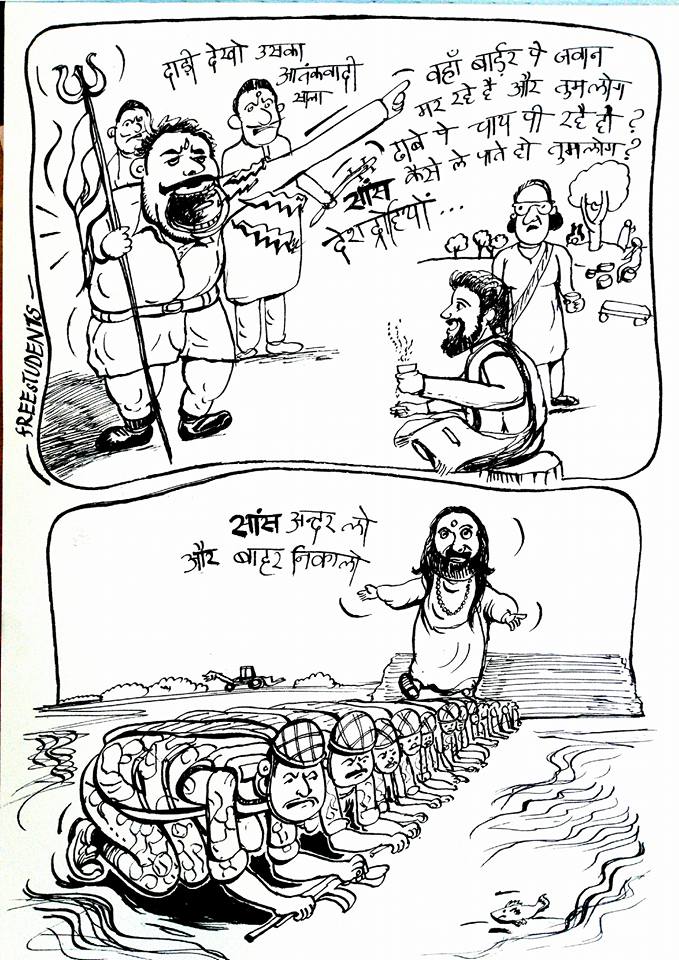 दाड़ी देखो उसका
आतंकवादी
साला
वहाँ बार्डर पे जवान
मर रहे है और तुमलोग
ढाबे पे चाय पी रहे हो ?
सांस कैसे ले पाते हो तुमलोग ?
देशद्रोहियों ...
FREESTUDENTS
सांस अन्दर लो
और बाहर निकालो